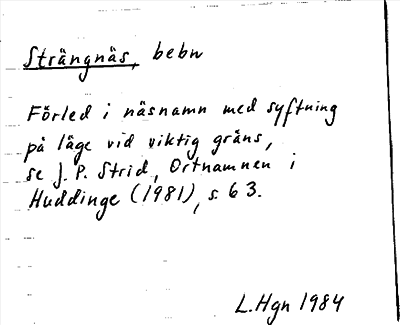 Strängnäs, bebn
Förled i näsnamn med syftning
på läge vid viktig gräns,
se J. P. Strid, Ortnamnen i
Huddinge (1981), s. 63.
L. Hgn 1984